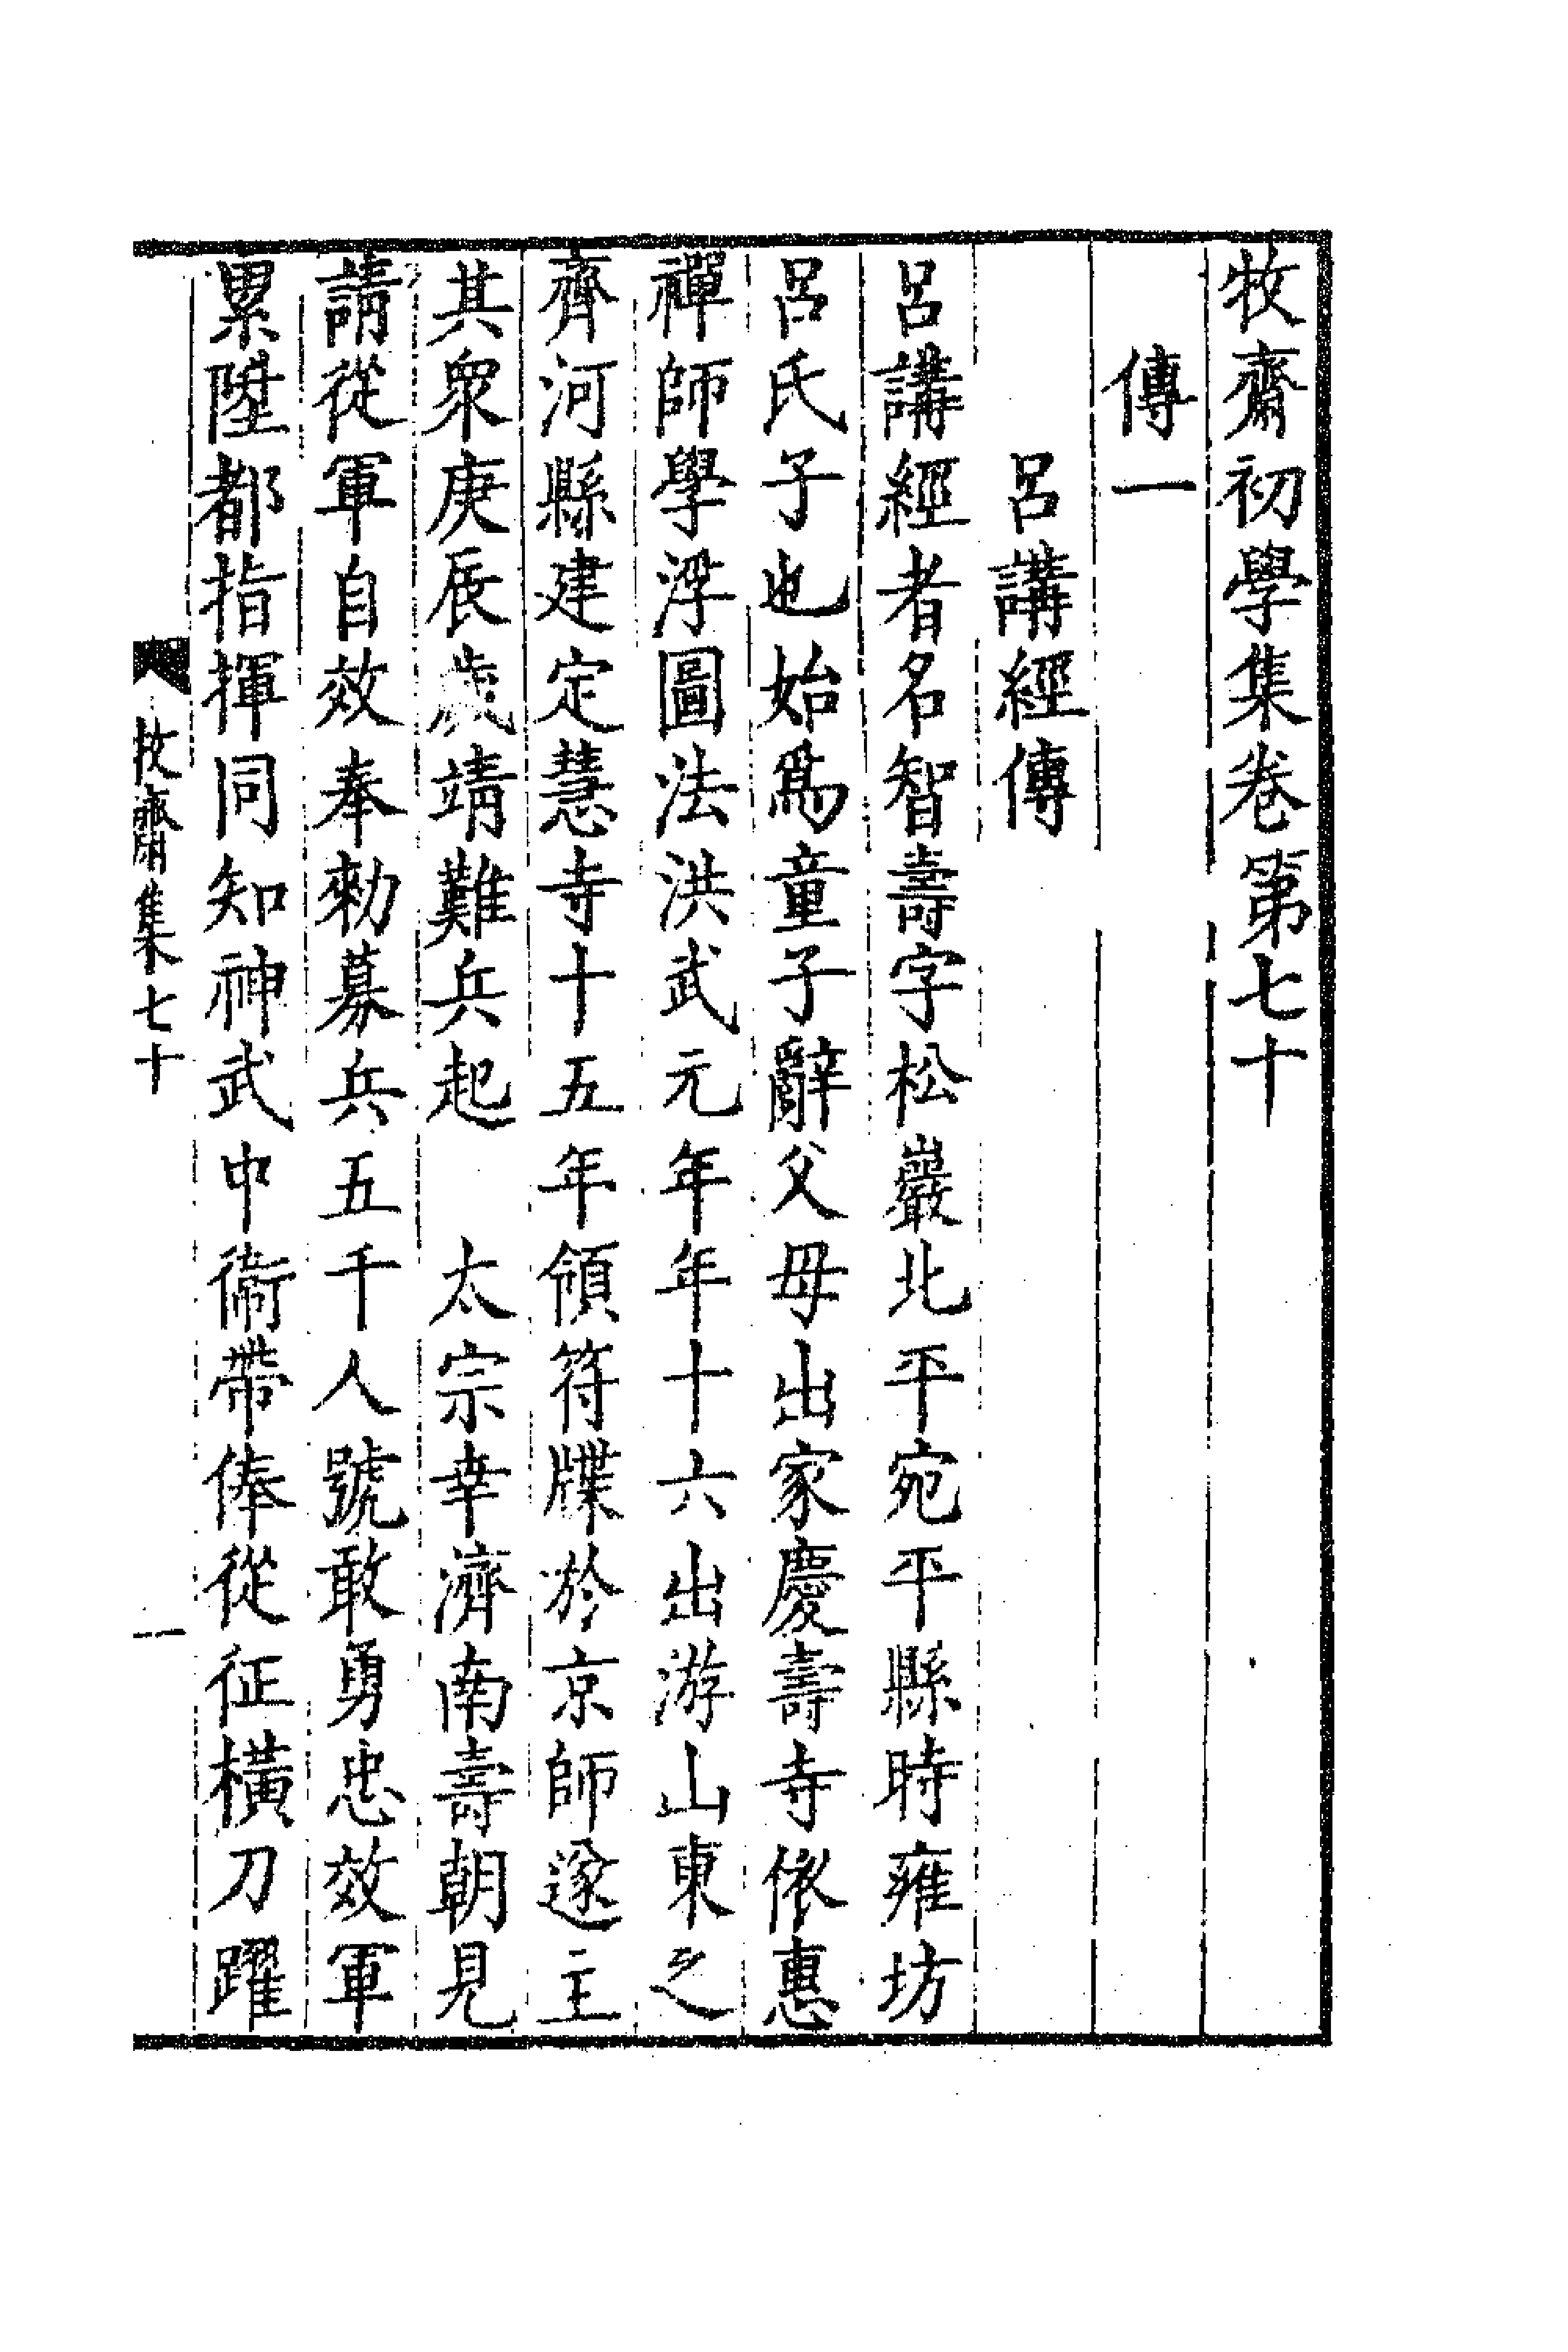 牧齋初學集卷第七十
傳一
呂講經傳
呂講經者名智壽字松巖北平宛平縣時雍坊
呂氏子也始爲童子辭父母出家慶壽寺依惠
禪師學浮圖法洪武元年年十六出游山東之
齊河縣建定慧寺十五年領符牒於京師遂主
其衆庚辰歲靖難兵起　太宗幸濟南壽朝見
請從軍自效奉勑募兵五千人號敢勇忠效軍
累陞都指揮同知神武中衞帶俸從征橫刀躍
牧齋集七十
一